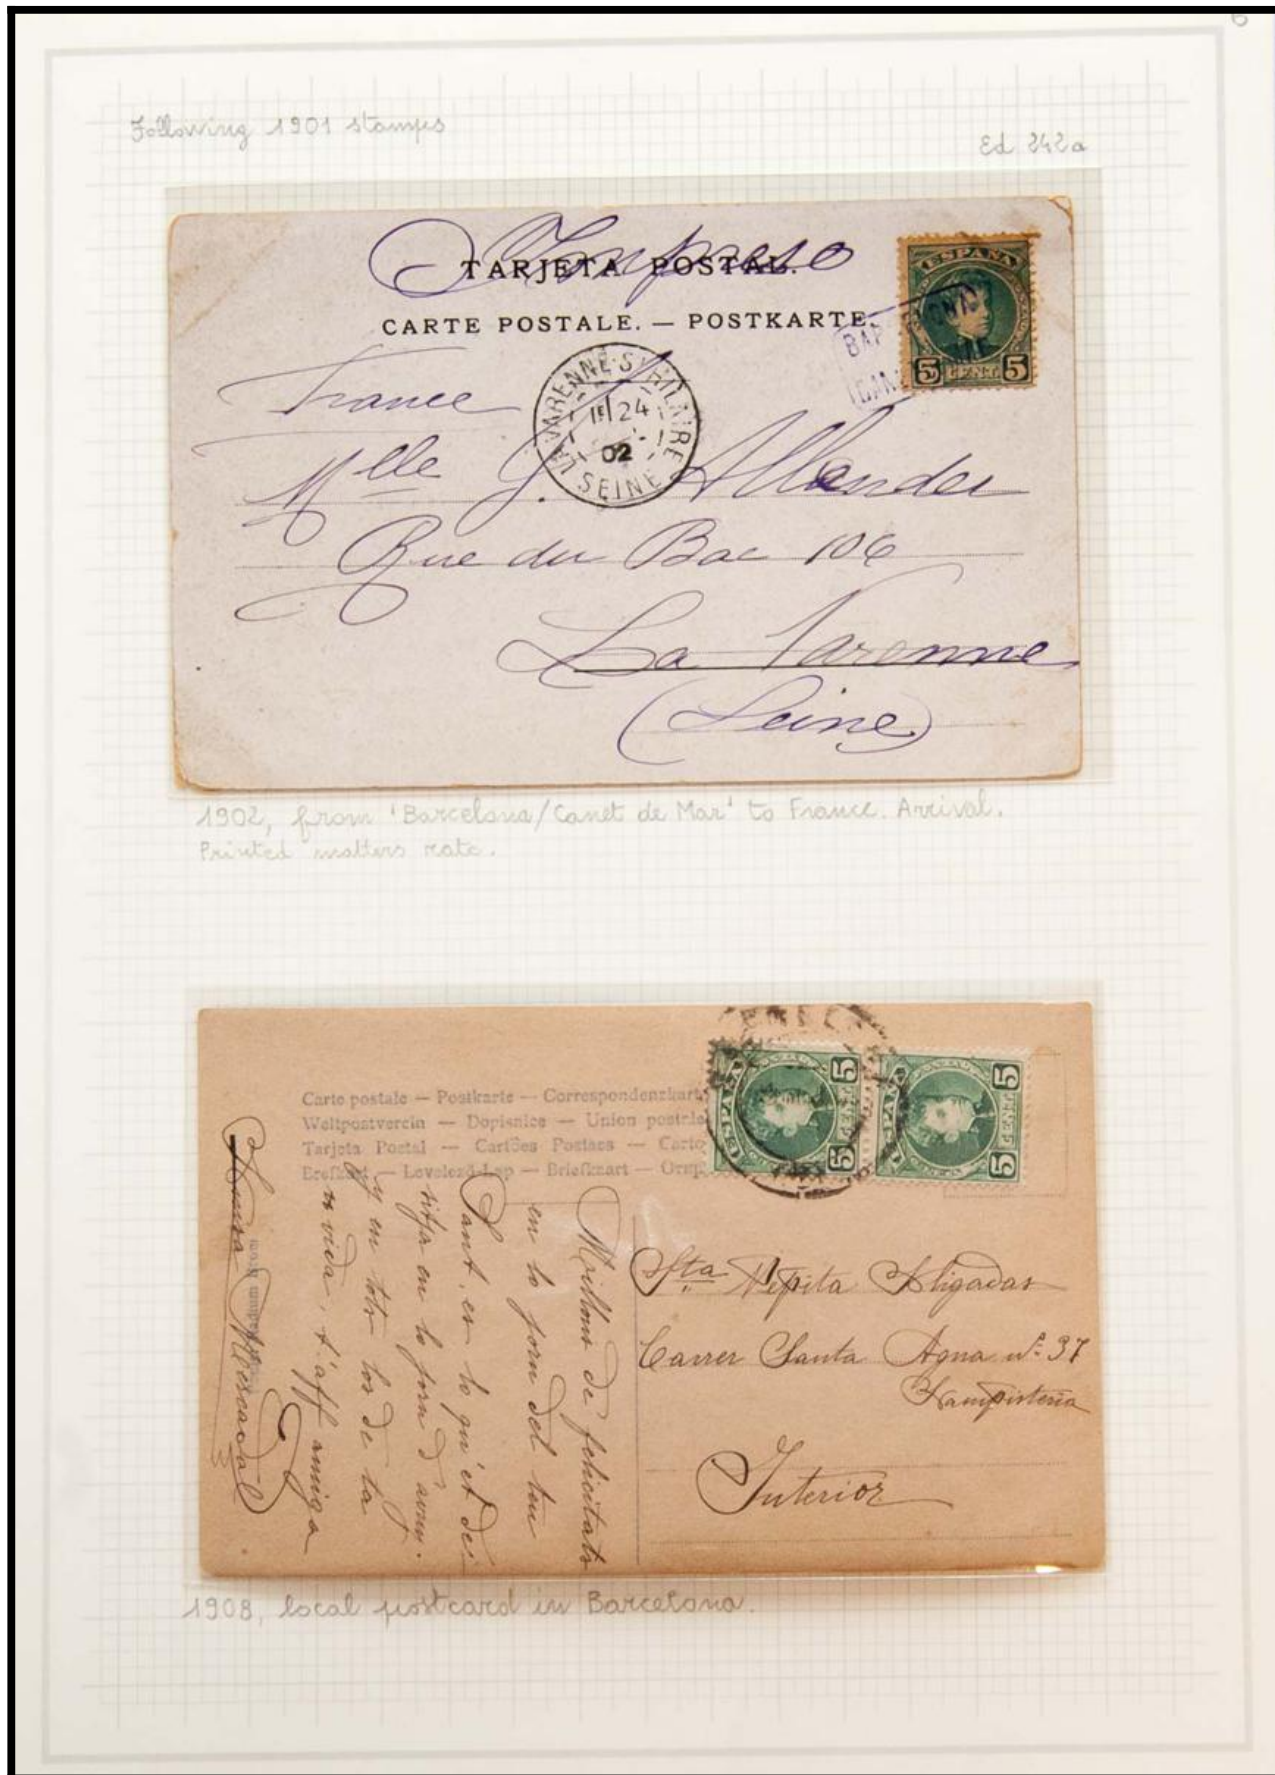 6
Following 1901 stamps
Ed 242a
Impreso
TARJETA POSTAL.
CARTE POSTALE. — POSTKARTE.
ESPAÑA
5 CENT. 5
BAR ONA
CAN
LA VARENNE-ST-HILAIRE
24
02
SEINE
France
Mlle J. Allender
Rue du Bac 106
La Varenne
(Seine)
1902, from 'Barcelona/Canet de Mar' to France. Arrival.
Printed matters rate.
Carte postale — Postkarte — Correspondenzkart
Weltpostverein — Dopisnice — Union postale
Tarjeta Postal — Cartões Postaes — Carto
Brefkort — Levelező-Lap — Briefkaart —
ESPAÑA
5 CENT. 5
ESPAÑA
5 CENT. 5
Millons de felicitats
en lo jorn del teu
Sant, es lo qu'et de-
sitja en lo jorn d'avuy.
y en tots los de ta
vida, t'aff amiga
Mercadal
Sta Pepita Sligadas
Carrer Santa Agna nº 37
Lampisteria
Interior
1908, local postcard in Barcelona.